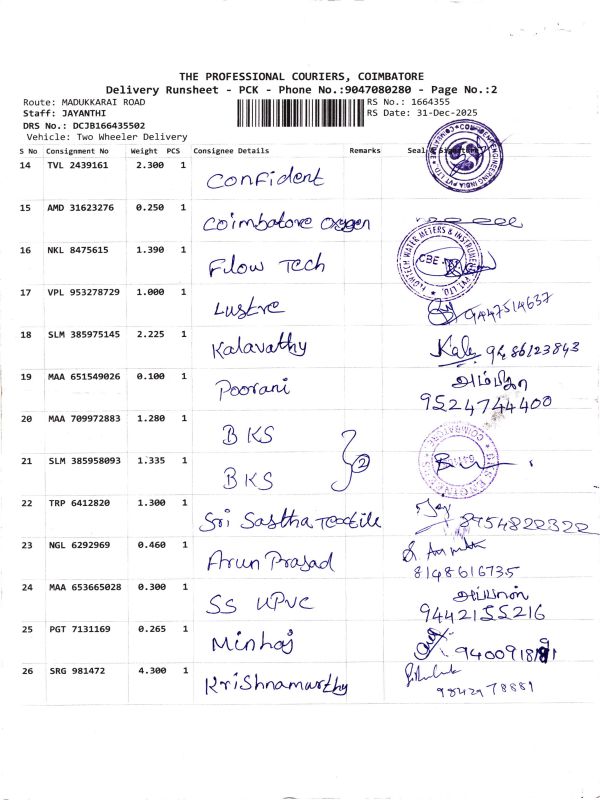 THE PROFESSIONAL COURIERS, COIMBATORE
Delivery Runsheet - PCK - Phone No.:9047080280 - Page No.:2
Route: MADUKKARAI ROAD
RS No.: 1664355
Staff: JAYANTHI
RS Date: 31-Dec-2025
DRS No.: DCJB166435502
Vehicle: Two Wheeler Delivery
S No Consignment No Weight PCS Consignee Details Remarks Seal & Signature
14 TVL 2439161 2.300 1 Confident
15 AMD 31623276 0.250 1 Coimbatore Oxygen
16 NKL 8475615 1.390 1 Flow Tech
FLOWTECH WATER METERS & INSTRUMENTS PVT. LTD. CBE
17 VPL 953278729 1.000 1 Lustre 9447514637
18 SLM 385975145 2.225 1 Kalavathy Kala 9486123843
19 MAA 651549026 0.100 1 Poorani
9524744400
20 MAA 709972883 1.280 1 BKS
21 SLM 385958093 1.335 1 BKS 2
22 TRP 6412820 1.300 1 Sri Sastha Textile 8954822322
23 NGL 6292969 0.460 1 Arun Prasad
8148616735
24 MAA 653665028 0.300 1 SS UPVC
9442155216
25 PGT 7131169 0.265 1 Minhaj
26 SRG 981472 4.300 1 Krishnamurthy
9842978881